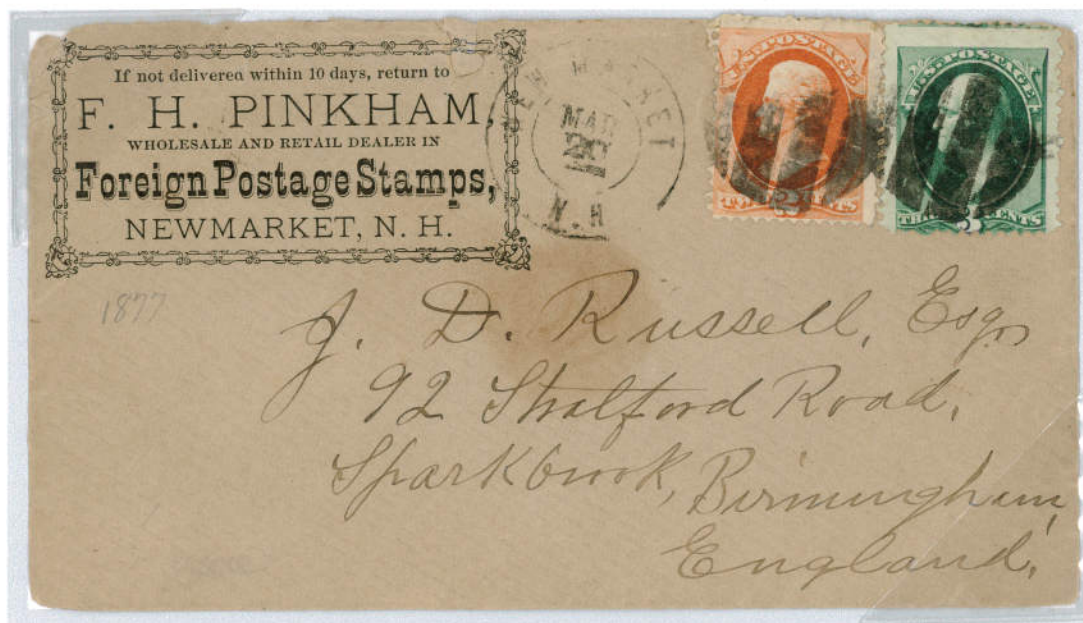 If not delivered within 10 days, return to
F. H. PINKHAM,
WHOLESALE AND RETAIL DEALER IN
Foreign Postage Stamps,
NEWMARKET, N. H.
MAR
20
N. H
U.S. POSTAGE
TWO 2 CENTS
U.S. POSTAGE
THREE 3 CENTS
1877
J. D. Russell, Esq.
92 Stratford Road,
Sparkbrook, Birmingham,
England.